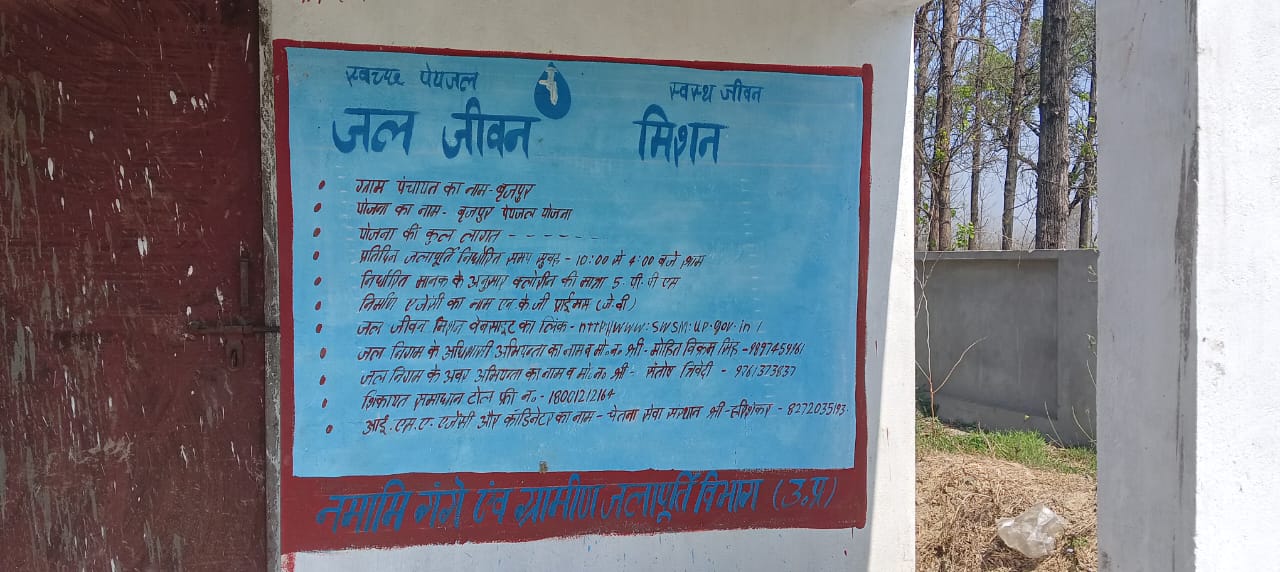 स्वच्छ पेयजल स्वस्थ जीवन
जल जीवन मिशन
• ग्राम पंचायत का नाम - वृजपुर
• योजना का नाम - वृजपुर पेयजल योजना
• योजना की कुल लागत - - - - - - -
• प्रतिदिन जलापूर्ति निर्धारित समय सुबह - 10:00 से 4:00 बजे शाम
• निर्धारित मानक के अनुसार क्लोरीन की मात्रा 5. पी पी एम
• निर्माण एजेंसी का नाम एन के जी प्राईमस (जे.वी)
• जल जीवन मिशन वेबसाइट का लिंक - http//www.swsm.up.gov.in/
• जल निगम के अधिशासी अभियन्ता का नाम व मो॰न॰ श्री - मोहित विक्रम सिंह -
• जल निगम के अवर अभियन्ता का नाम व मो॰न॰ श्री - संतोष त्रिवेदी -
• शिकायत समाधान टोल फ्री न०-
• आई.एस.ए. एजेंसी और कॉडिनेटर का नाम - चेतना सेवा संस्थान श्री - 8272035193.
नमामि गंगे एंव ग्रामीण जलापूर्ति विभाग (उ॰प्र)